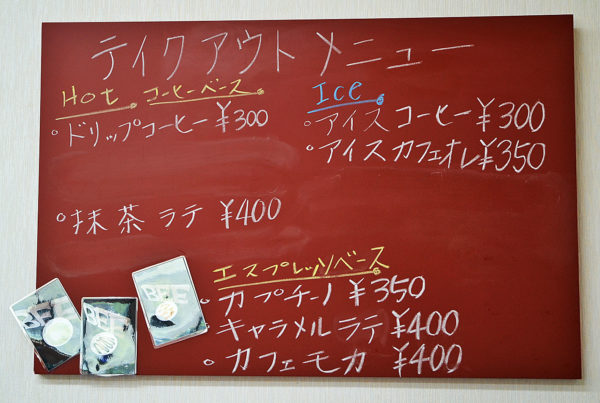 テイクアウトメニュー
Hot コーヒーベース
。ドリップコーヒー ¥300
Ice
。アイスコーヒー ¥300
。アイスカフェオレ ¥350
。抹茶ラテ ¥400
エスプレッソベース
。カプチーノ ¥350
。キャラメルラテ ¥400
。カフェモカ ¥400